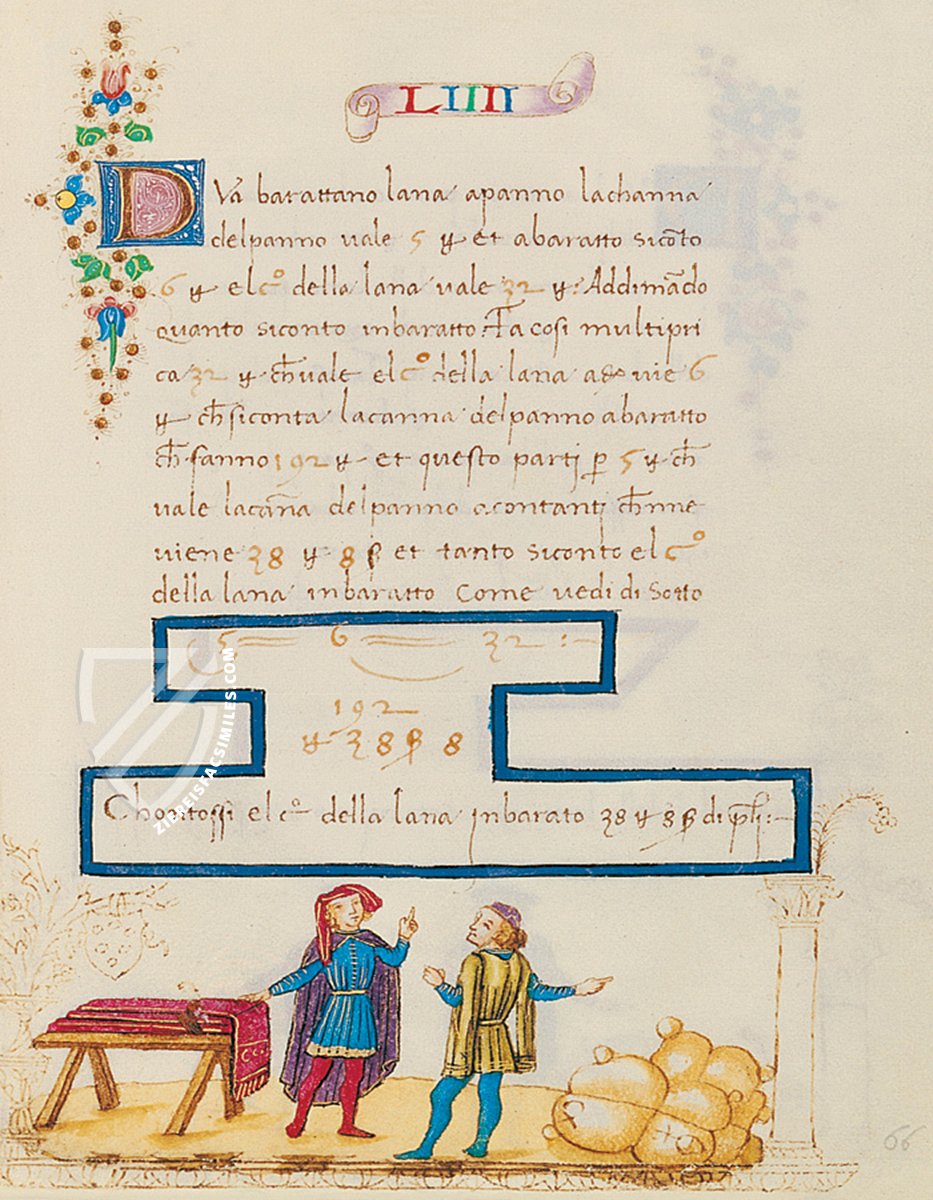 LIIII
DVa barattano lana apanno lachanna
delpanno vale 5 ꝟ et abaratto siconto
6 ꝟ elcº della lana vale 32 ꝟ: Addimādo
quanto siconto inbaratto. Fa cosi multipri
ca 32 ꝟ ch̄vale elcº della lana vie 6
ꝟ ch̄siconta lacanna delpanno abaratto
ch̄fanno 192 ꝟ et questo parti p̄ 5 ꝟ ch̄
vale lacāna delpanno acontantj ch̄nne
viene 38 ꝟ 8 ꞵ et tanto siconto elcº
della lana inbaratto come vedi di sotto
5 == 6 == 32 :-
192
ꝟ 38 ꞵ 8
Chontossi elcº della lana jnbarato 38 ꝟ 8 ꞵ di
66
ZIEREISFACSIMILES.COM